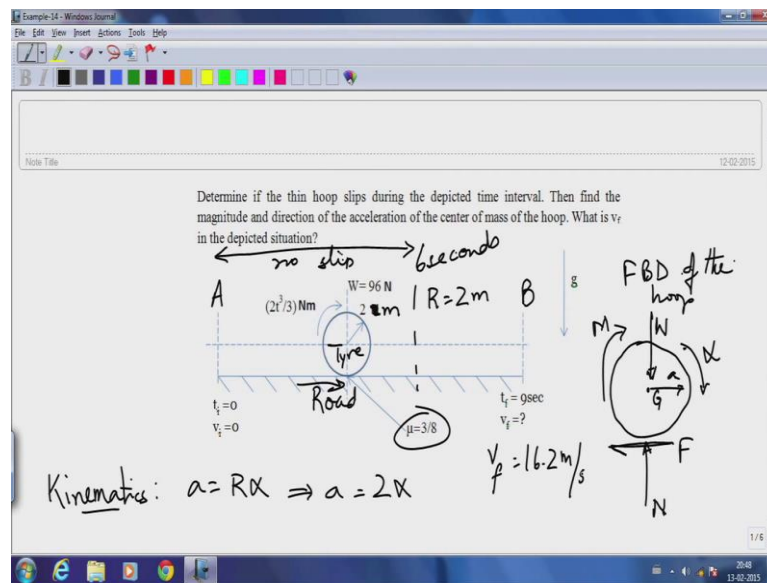 Example-14 - Windows Journal
File Edit View Insert Actions Tools Help
B I
Note Title
12-02-2015
Determine if the thin hoop slips during the depicted time interval. Then find the
magnitude and direction of the acceleration of the center of mass of the hoop. What is vf
in the depicted situation?
no slip
6 seconds
A
W= 96 N
(2t³/3) Nm
2 m
R=2m
B
g
FBD of the
hoop
Tyre
M
W
α
a
G
Road
ti =0
vi =0
μ=3/8
tf = 9sec
vf =?
F
N
vf = 16.2 m/s
Kinematics: a= Rα ⇒ a = 2α
1/6
20:48
13-02-2015